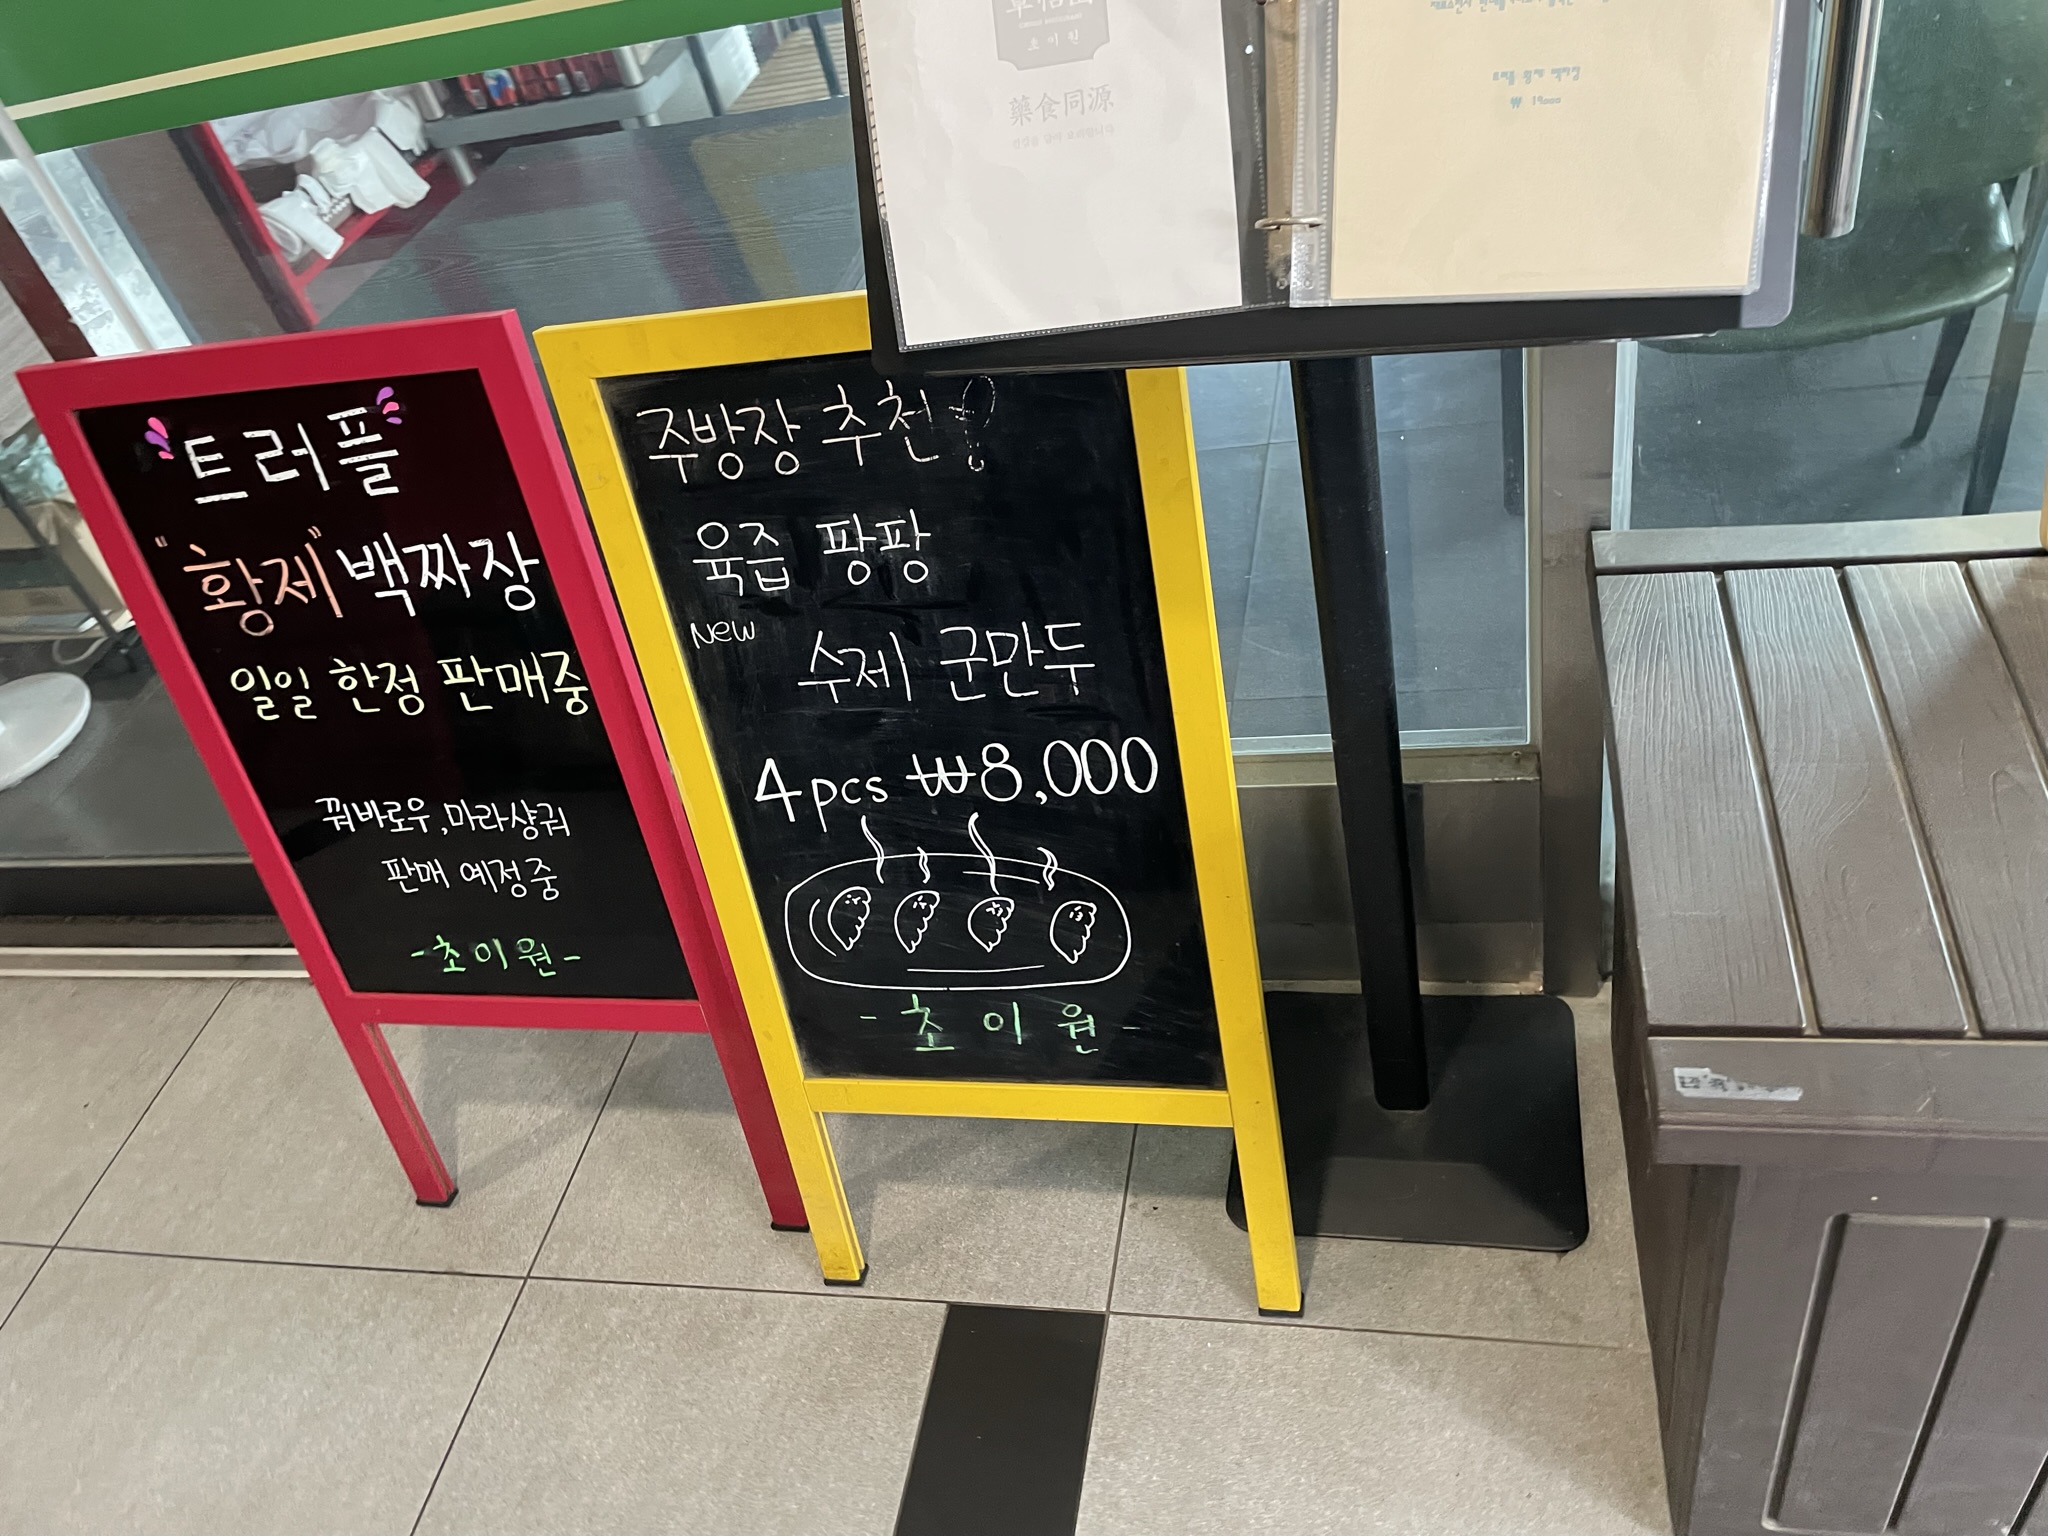 트러플
"황제" 백짜장
일일 한정 판매중
꿔바로우, 마라샹궈
판매 예정중
-초이원-
주방장 추천!
육즙 팡팡
New
수제 군만두
4pcs ₩8,000
- 초이원 -
초이원
藥食同源
트러플 황제 백짜장
₩ 19000